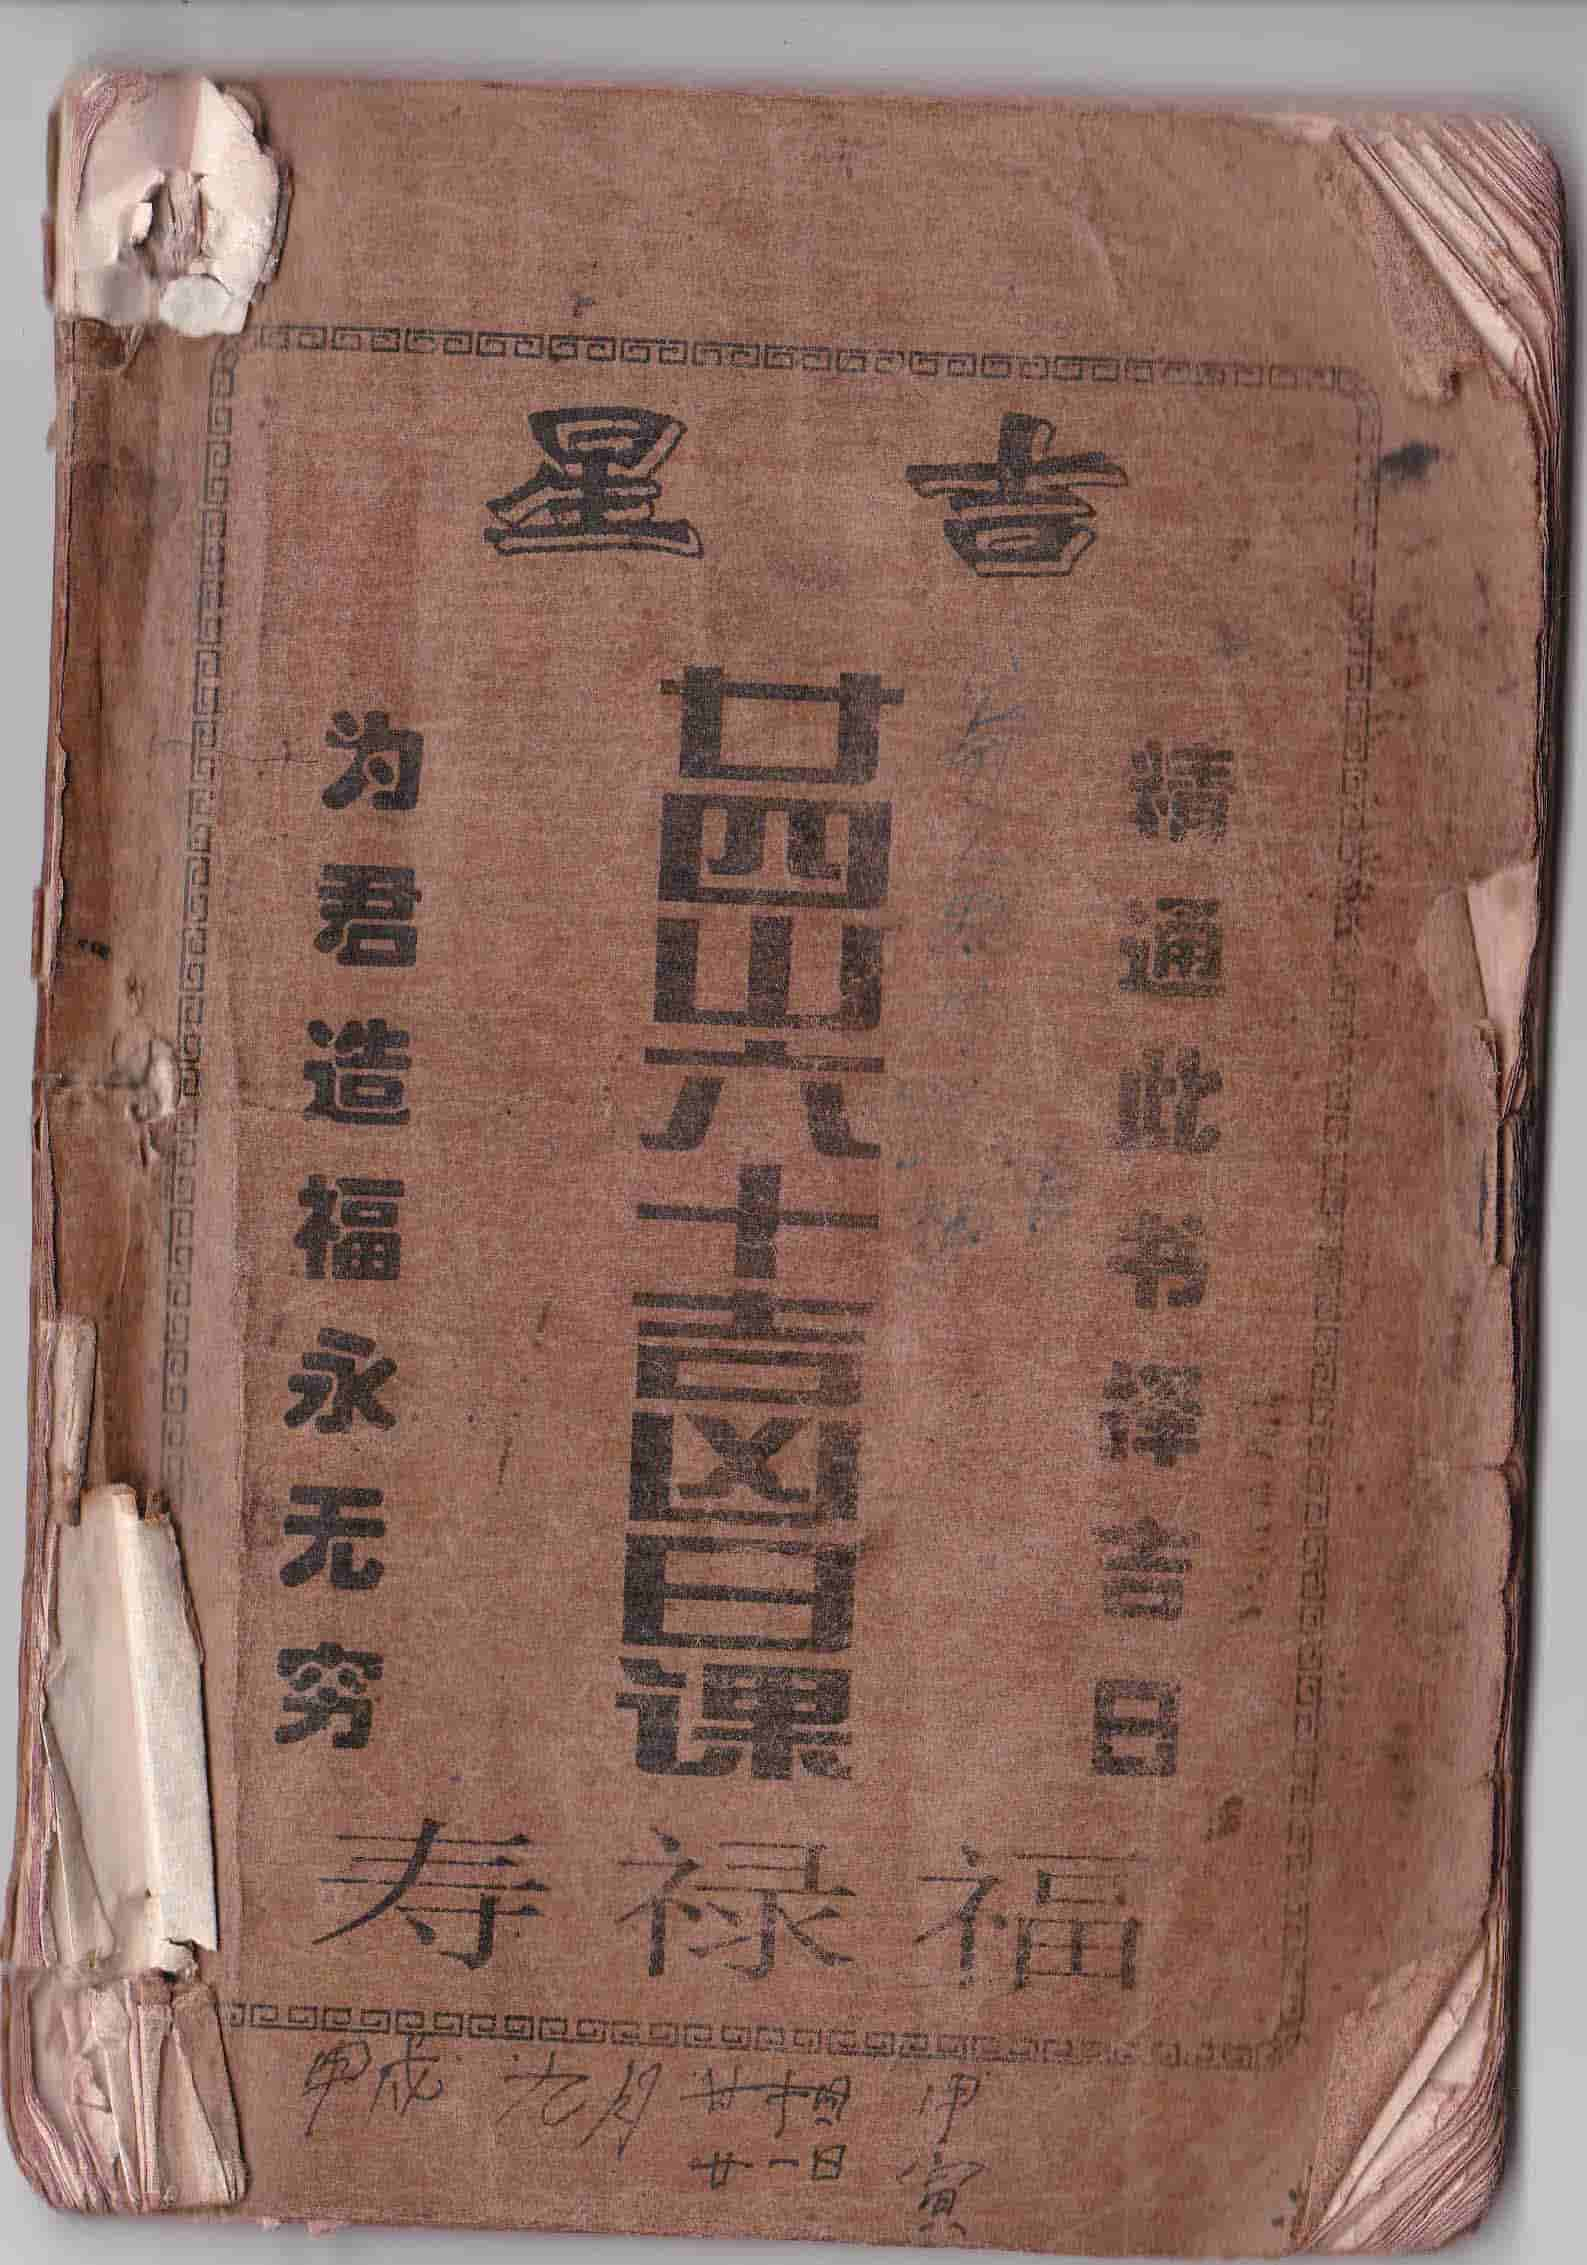 吉星
精通此书择吉日
廿四山六十吉凶日课
为君造福永无穷
福禄寿
甲戌 九月 甲
廿一日 寅